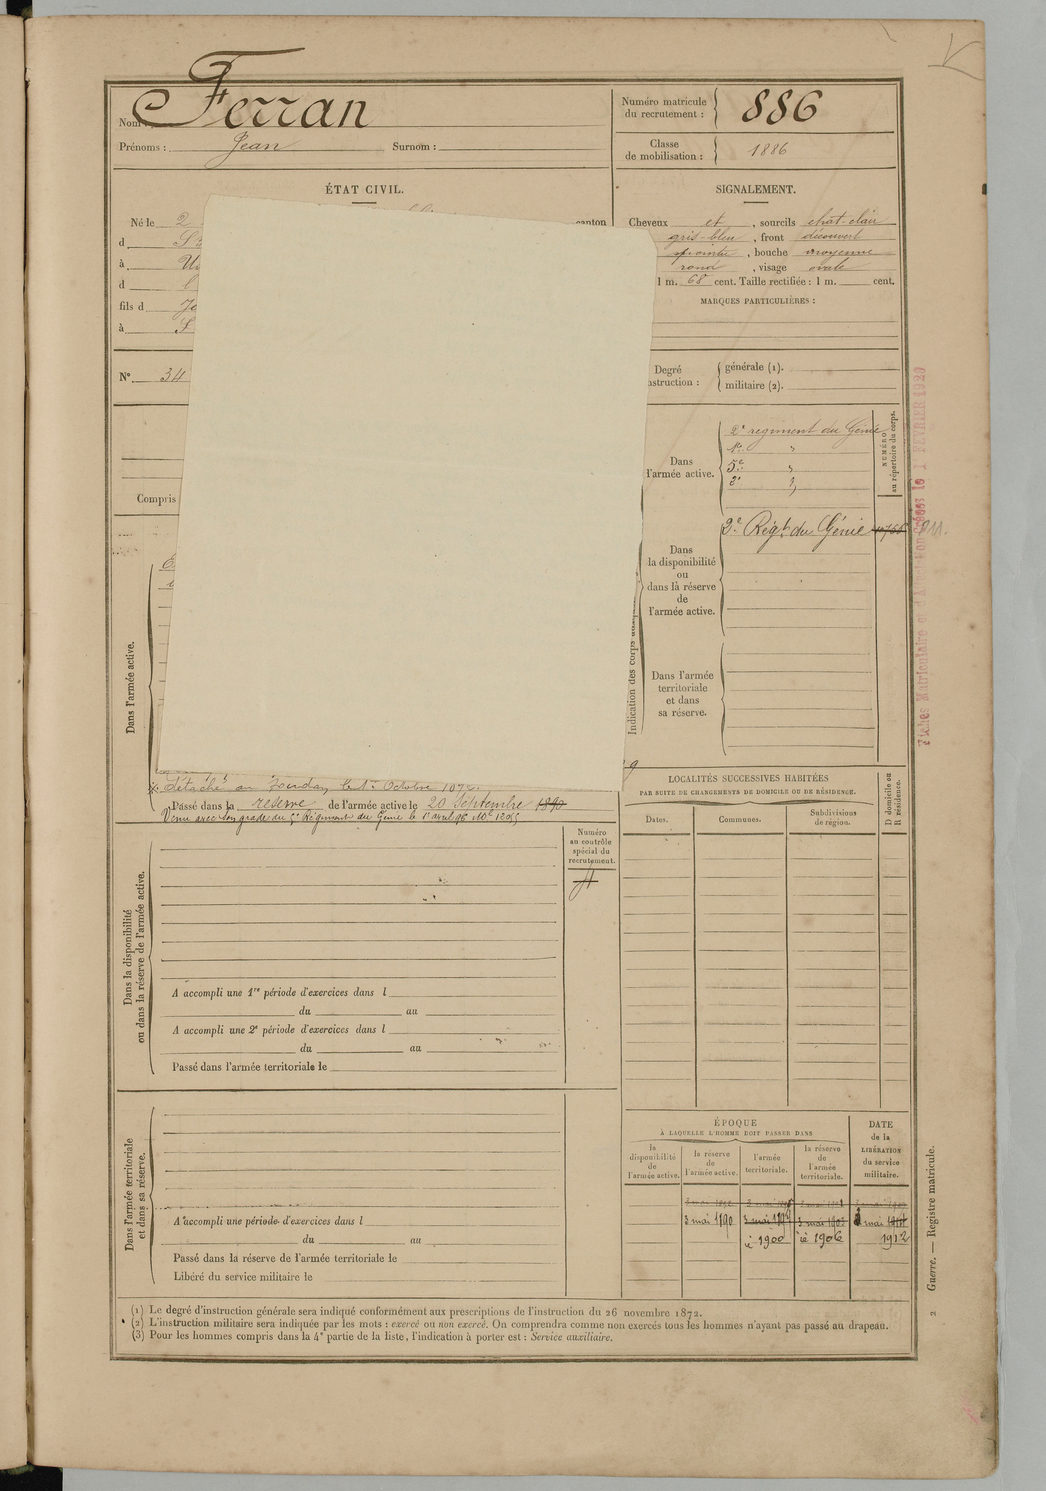 Nom : Ferran
Prénoms : Jean Surnom :
Numéro matricule du recrutement : 886
Classe de mobilisation : 1886
ÉTAT CIVIL.
Né le 2 canton
d S
à
d
fils d
à S
N° 34
Compris
SIGNALEMENT.
Cheveux et , sourcils chat-clair
gris-bleu , front découvert
pointu , bouche moyenne
rond , visage ovale
1 m. 68 cent. Taille rectifiée : 1 m. cent.
MARQUES PARTICULIÈRES :
Degré
struction :
générale (1).
militaire (2).
NUMÉRO
au répertoire du corps.
Dans
l'armée active.
2e regiment du Génie
5e "
2e Régt. du Génie
Dans
la disponibilité
ou
dans la réserve
de
l'armée active.
Dans l'armée
territoriale
et dans
sa réserve.
Indication des corps
Fiches Matriculaire et
1er FEVRIER 1929
Dans l'armée active.
Octobre
Passé dans la reserve de l'armée active le 20 Septembre 1890
Venu avec son grade du 5e Régiment du Génie le 1er avril 96
Numéro
au contrôle
spécial du
recrutement.
Dans la disponibilité
ou dans la réserve de l'armée active.
A accompli une 1re période d'exercices dans l
du au
A accompli une 2e période d'exercices dans l
du au
Passé dans l'armée territoriale le
Dans l'armée territoriale
et dans sa réserve.
A accompli une période d'exercices dans l
du au
Passé dans la réserve de l'armée territoriale le
Libéré du service militaire le
LOCALITÉS SUCCESSIVES HABITÉES
PAR SUITE DE CHANGEMENTS DE DOMICILE OU DE RÉSIDENCE.
Dates. Communes. Subdivisions de région.
D domicile ou
R résidence.
ÉPOQUE
À LAQUELLE L'HOMME DOIT PASSER DANS
la disponibilité de l'armée active.
la réserve de l'armée active.
l'armée territoriale.
la réserve de l'armée territoriale.
DATE de la LIBÉRATION du service militaire.
3 mai 1890 3 mai 3 mai mai
1900 1906 1912
(1) Le degré d'instruction générale sera indiqué conformément aux prescriptions de l'instruction du 26 novembre 1872.
(2) L'instruction militaire sera indiquée par les mots : exercé ou non exercé. On comprendra comme non exercés tous les hommes n'ayant pas passé au drapeau.
(3) Pour les hommes compris dans la 4e partie de la liste, l'indication à porter est : Service auxiliaire.
2 Guerre. — Registre matricule.